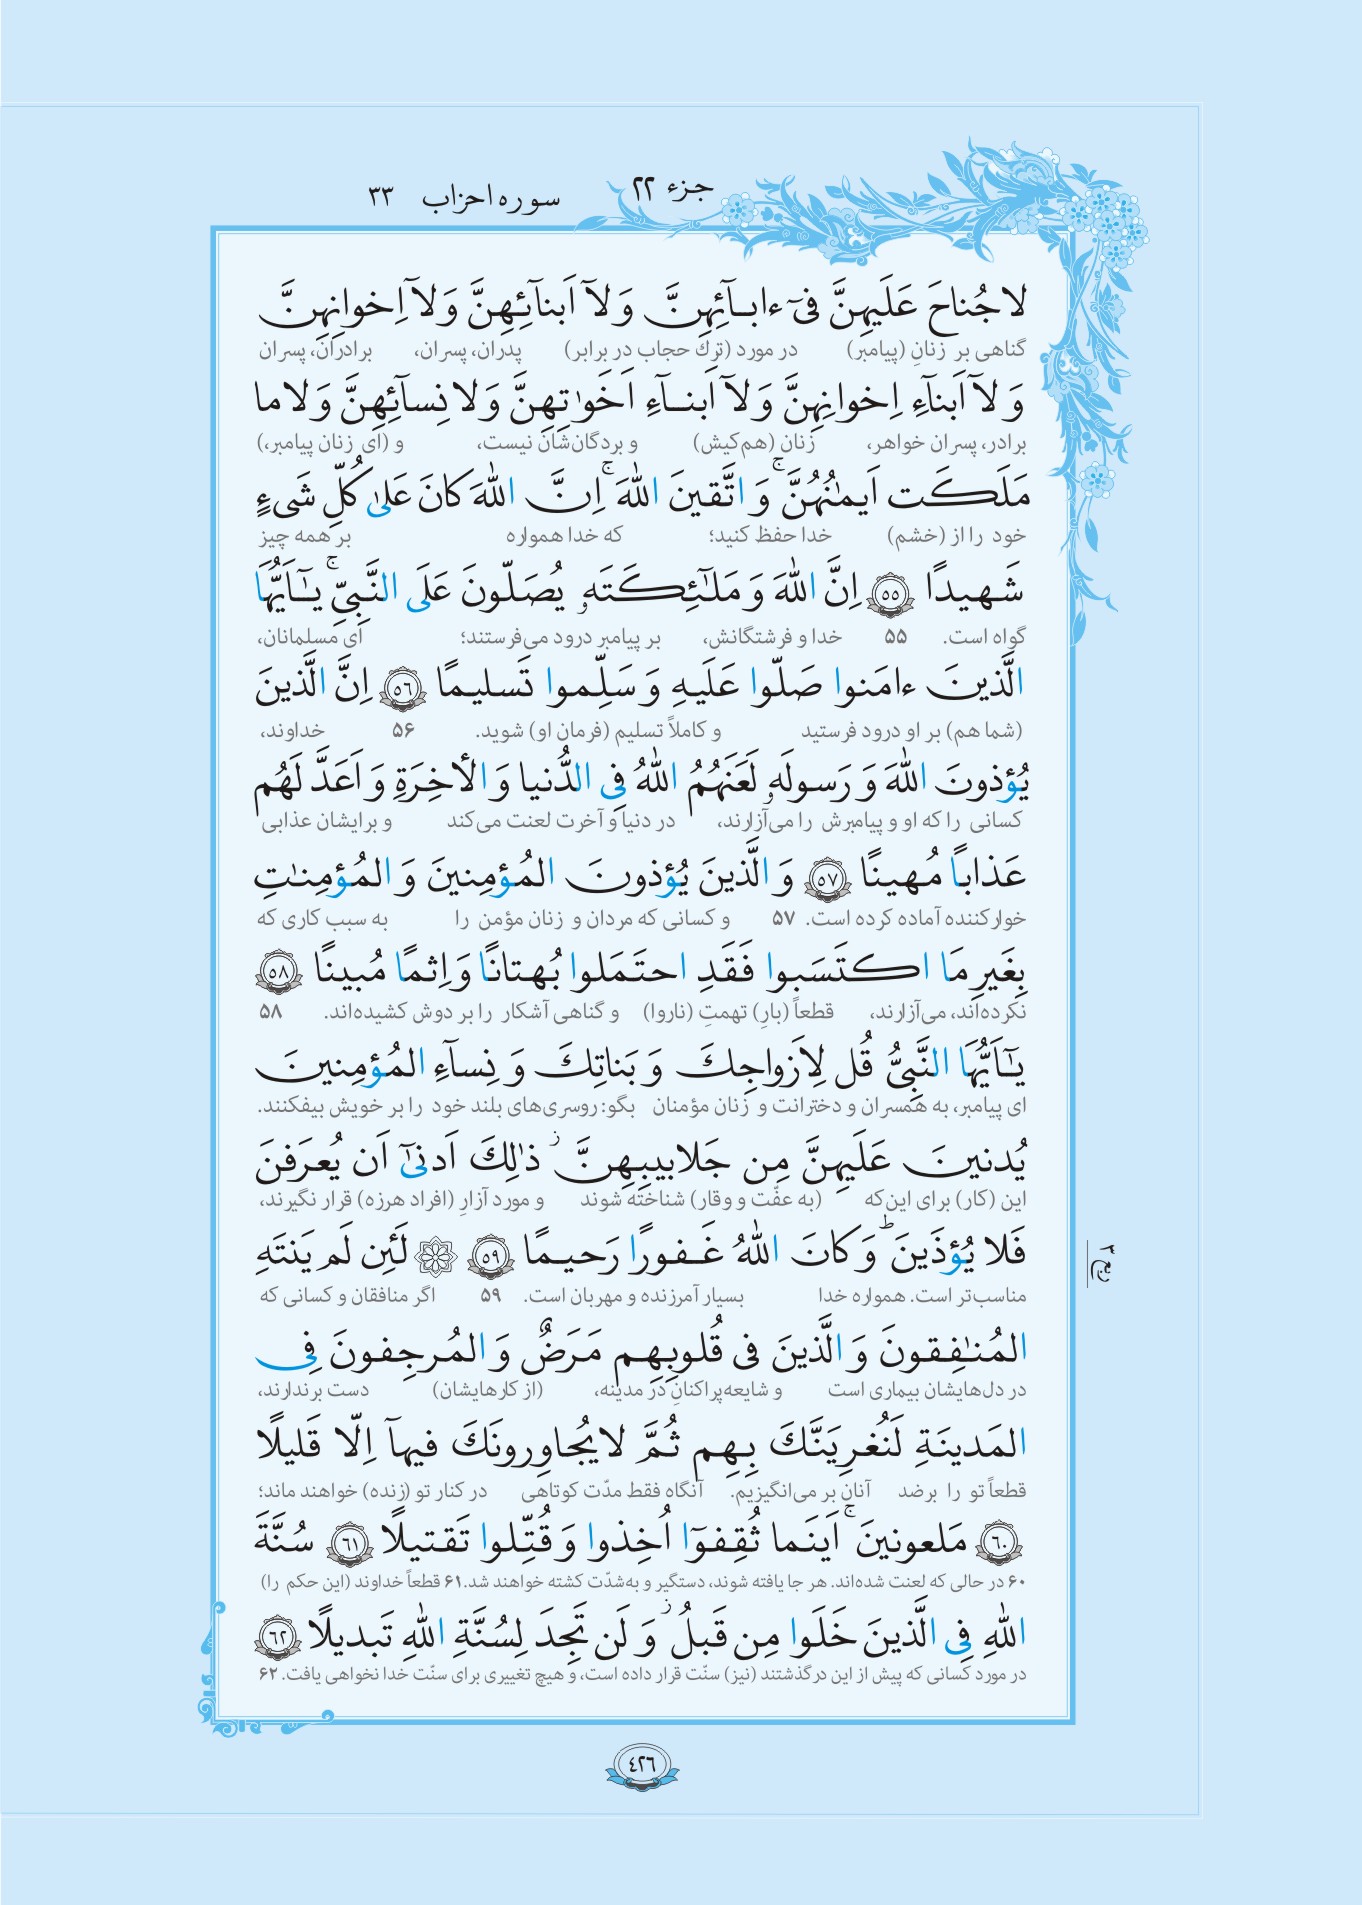 جزء ۲۲
سوره احزاب ۳۳
لا جُناحَ عَلَيهِنَّ فىٓ ءابـآئِهِنَّ وَ لآ اَبنآئِهِنَّ وَ لآ اِخوانِهِنَّ
گناهی بر زنانِ (پیامبر) در مورد (ترک حجاب در برابر) پدران، پسران، برادران، پسران
وَ لآ اَبنآءِ اِخوانِهِنَّ وَ لآ اَبنــآءِ اَخَوٰتِهِنَّ وَ لا نِسآئِهِنَّ وَ لا ما
برادر، پسران خواهر، زنان (هم‌کیش) و بردگان‌شان نیست، و (ای زنان پیامبر،)
مَلَكَت اَيمٰنُهُنَّ ۚ وَ اتَّقينَ اللهَ ۚ اِنَّ اللهَ كانَ عَلىٰ كُلِّ شَىءٍ
خود را از (خشم) خدا حفظ کنید؛ که خدا همواره بر همه چیز
شَـهيدًا ﴿٥٥﴾ اِنَّ اللهَ وَ مَلـٰٓئِكَتَهٗ يُصَلّونَ عَلَى النَّبِىِّ ۚ يـٰٓاَيُّهَا
گواه است. ۵۵ خدا و فرشتگانش، بر پیامبر درود می‌فرستند؛ ای مسلمانان،
الَّذينَ ءامَنوا صَلّوا عَلَيهِ وَ سَلِّموا تَسليمًا ﴿٥٦﴾ اِنَّ الَّذينَ
(شما هم) بر او درود فرستید و کاملاً تسلیم (فرمان او) شوید. ۵۶ خداوند،
يُؤذونَ اللهَ وَ رَسولَهٗ لَعَنَهُمُ اللهُ فِى الدُّنيا وَ الأخِرَةِ وَ اَعَدَّ لَهُم
کسانی را که او و پیامبرش را می‌آزارند، در دنیا و آخرت لعنت می‌کند و برایشان عذابی
عَذابـًا مُهينًا ﴿٥٧﴾ وَ الَّذينَ يُؤذونَ المُؤمِنينَ وَ المُؤمِنـٰتِ
خوارکننده آماده کرده است. ۵۷ و کسانی که مردان و زنان مؤمن را به سبب کاری که
بِغَيرِ مَا اكتَسَبوا فَقَدِ احتَمَلوا بُهتانًا وَ اِثمًا مُبينًا ﴿٥٨﴾
نکرده‌اند، می‌آزارند، قطعاً (بارِ) تهمتِ (ناروا) و گناهی آشکار را بر دوش کشیده‌اند. ۵۸
يـٰٓاَيُّهَا النَّبِىُّ قُل لِاَزواجِكَ وَ بَناتِكَ وَ نِسآءِ المُؤمِنينَ
ای پیامبر، به همسران و دخترانت و زنان مؤمنان بگو: روسری‌های بلند خود را بر خویش بیفکنند.
يُدنينَ عَلَيهِنَّ مِن جَلابيبِهِنَّ ۚ ذٰلِكَ اَدنىٰٓ اَن يُعرَفنَ
این (کار) برای این‌که (به عفّت و وقار) شناخته شوند و مورد آزارِ (افراد هرزه) قرار نگیرند،
فَلا يُؤذَينَ ؕ وَ كانَ اللهُ غَـفورًا رَحيـمًا ﴿٥٩﴾ ۞ لَئِن لَم يَنتَهِ
مناسب‌تر است. همواره خدا بسیار آمرزنده و مهربان است. ۵۹ اگر منافقان و کسانی که
ربع ۳
المُنـٰفِقونَ وَ الَّذينَ فى قُلوبِهِم مَرَضٌ وَ المُرجِفونَ فِى
در دل‌هایشان بیماری است و شایعه‌پراکنان در مدینه، (از کارهایشان) دست برندارند،
المَدينَةِ لَنُغرِيَنَّكَ بِهِم ثُمَّ لا يُجاوِرونَكَ فيهآ اِلّا قَليلًا
قطعاً تو را برضد آنان بر می‌انگیزیم. آنگاه فقط مدّت کوتاهی در کنار تو (زنده) خواهند ماند؛
﴿٦٠﴾ مَلعونينَ ۚ اَينَما ثُقِفوٓا اُخِذوا وَ قُتِّلوا تَقتيلًا ﴿٦١﴾ سُنَّةَ
۶۰ در حالی که لعنت شده‌اند. هر جا یافته شوند، دستگیر و به‌شدّت کشته خواهند شد. ۶۱ قطعاً خداوند (این حکم را)
اللهِ فِى الَّذينَ خَلَوا مِن قَبلُ ۖ وَ لَن تَجِدَ لِسُنَّةِ اللهِ تَبديلًا ﴿٦٢﴾
در مورد کسانی که پیش از این درگذشتند (نیز) سنّت قرار داده است، و هیچ تغییری برای سنّت خدا نخواهی یافت. ۶۲
٤٢٦